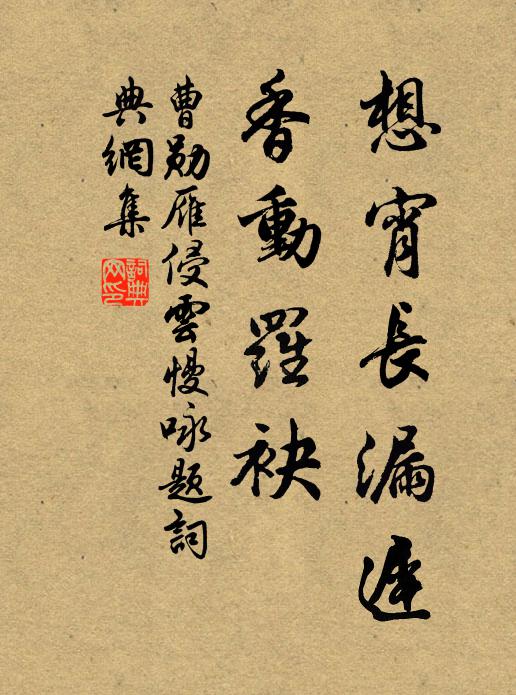 想宵長漏遲
香動羅袂
曹勛雁侵雲慢咏題詞
典網集
詞典
网印